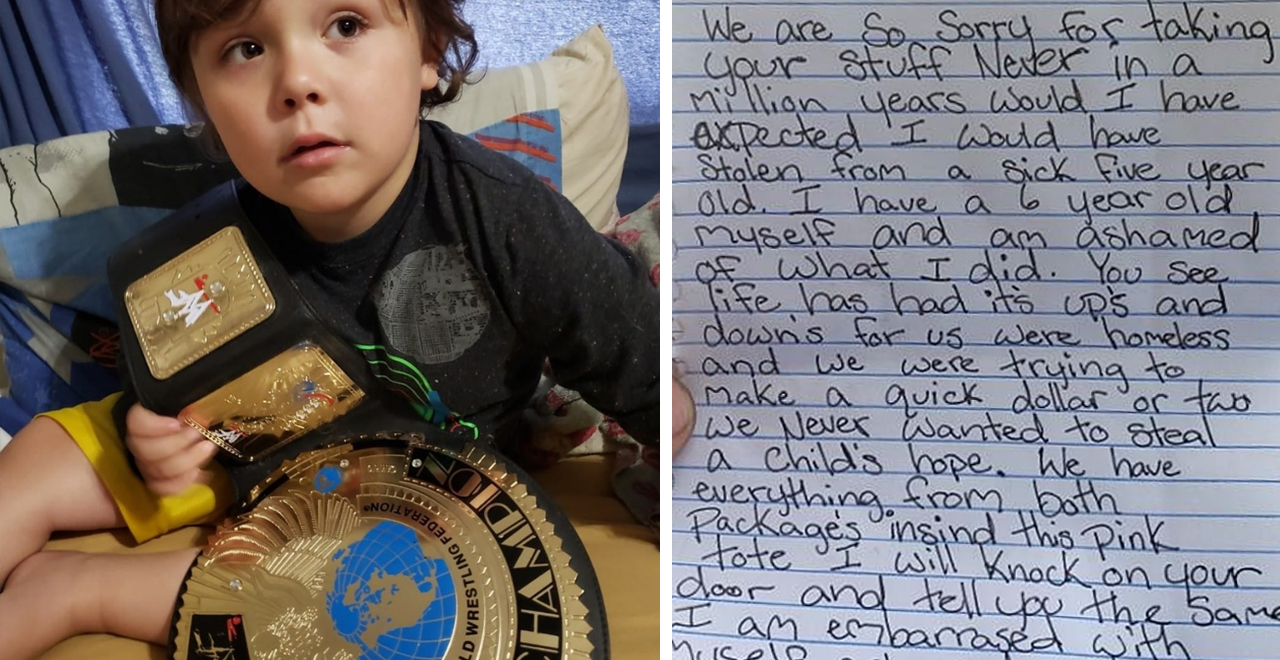 CHAMPION
WORLD WRESTLING FEDERATION®
We are So Sorry for taking
your stuff Never in a
million years would I have
expected I would have
Stolen from a sick five year
old. I have a 6 year old
myself and am ashamed
of what I did. You see
life has had it's up's and
down's for us were homeless
and we were trying to
make a quick dollar or two
we Never wanted to steal
a child's hope. We have
everything from both
Package's insind this pink
tote I will knock on your
door and tell you the same
I am embarrased with
myself